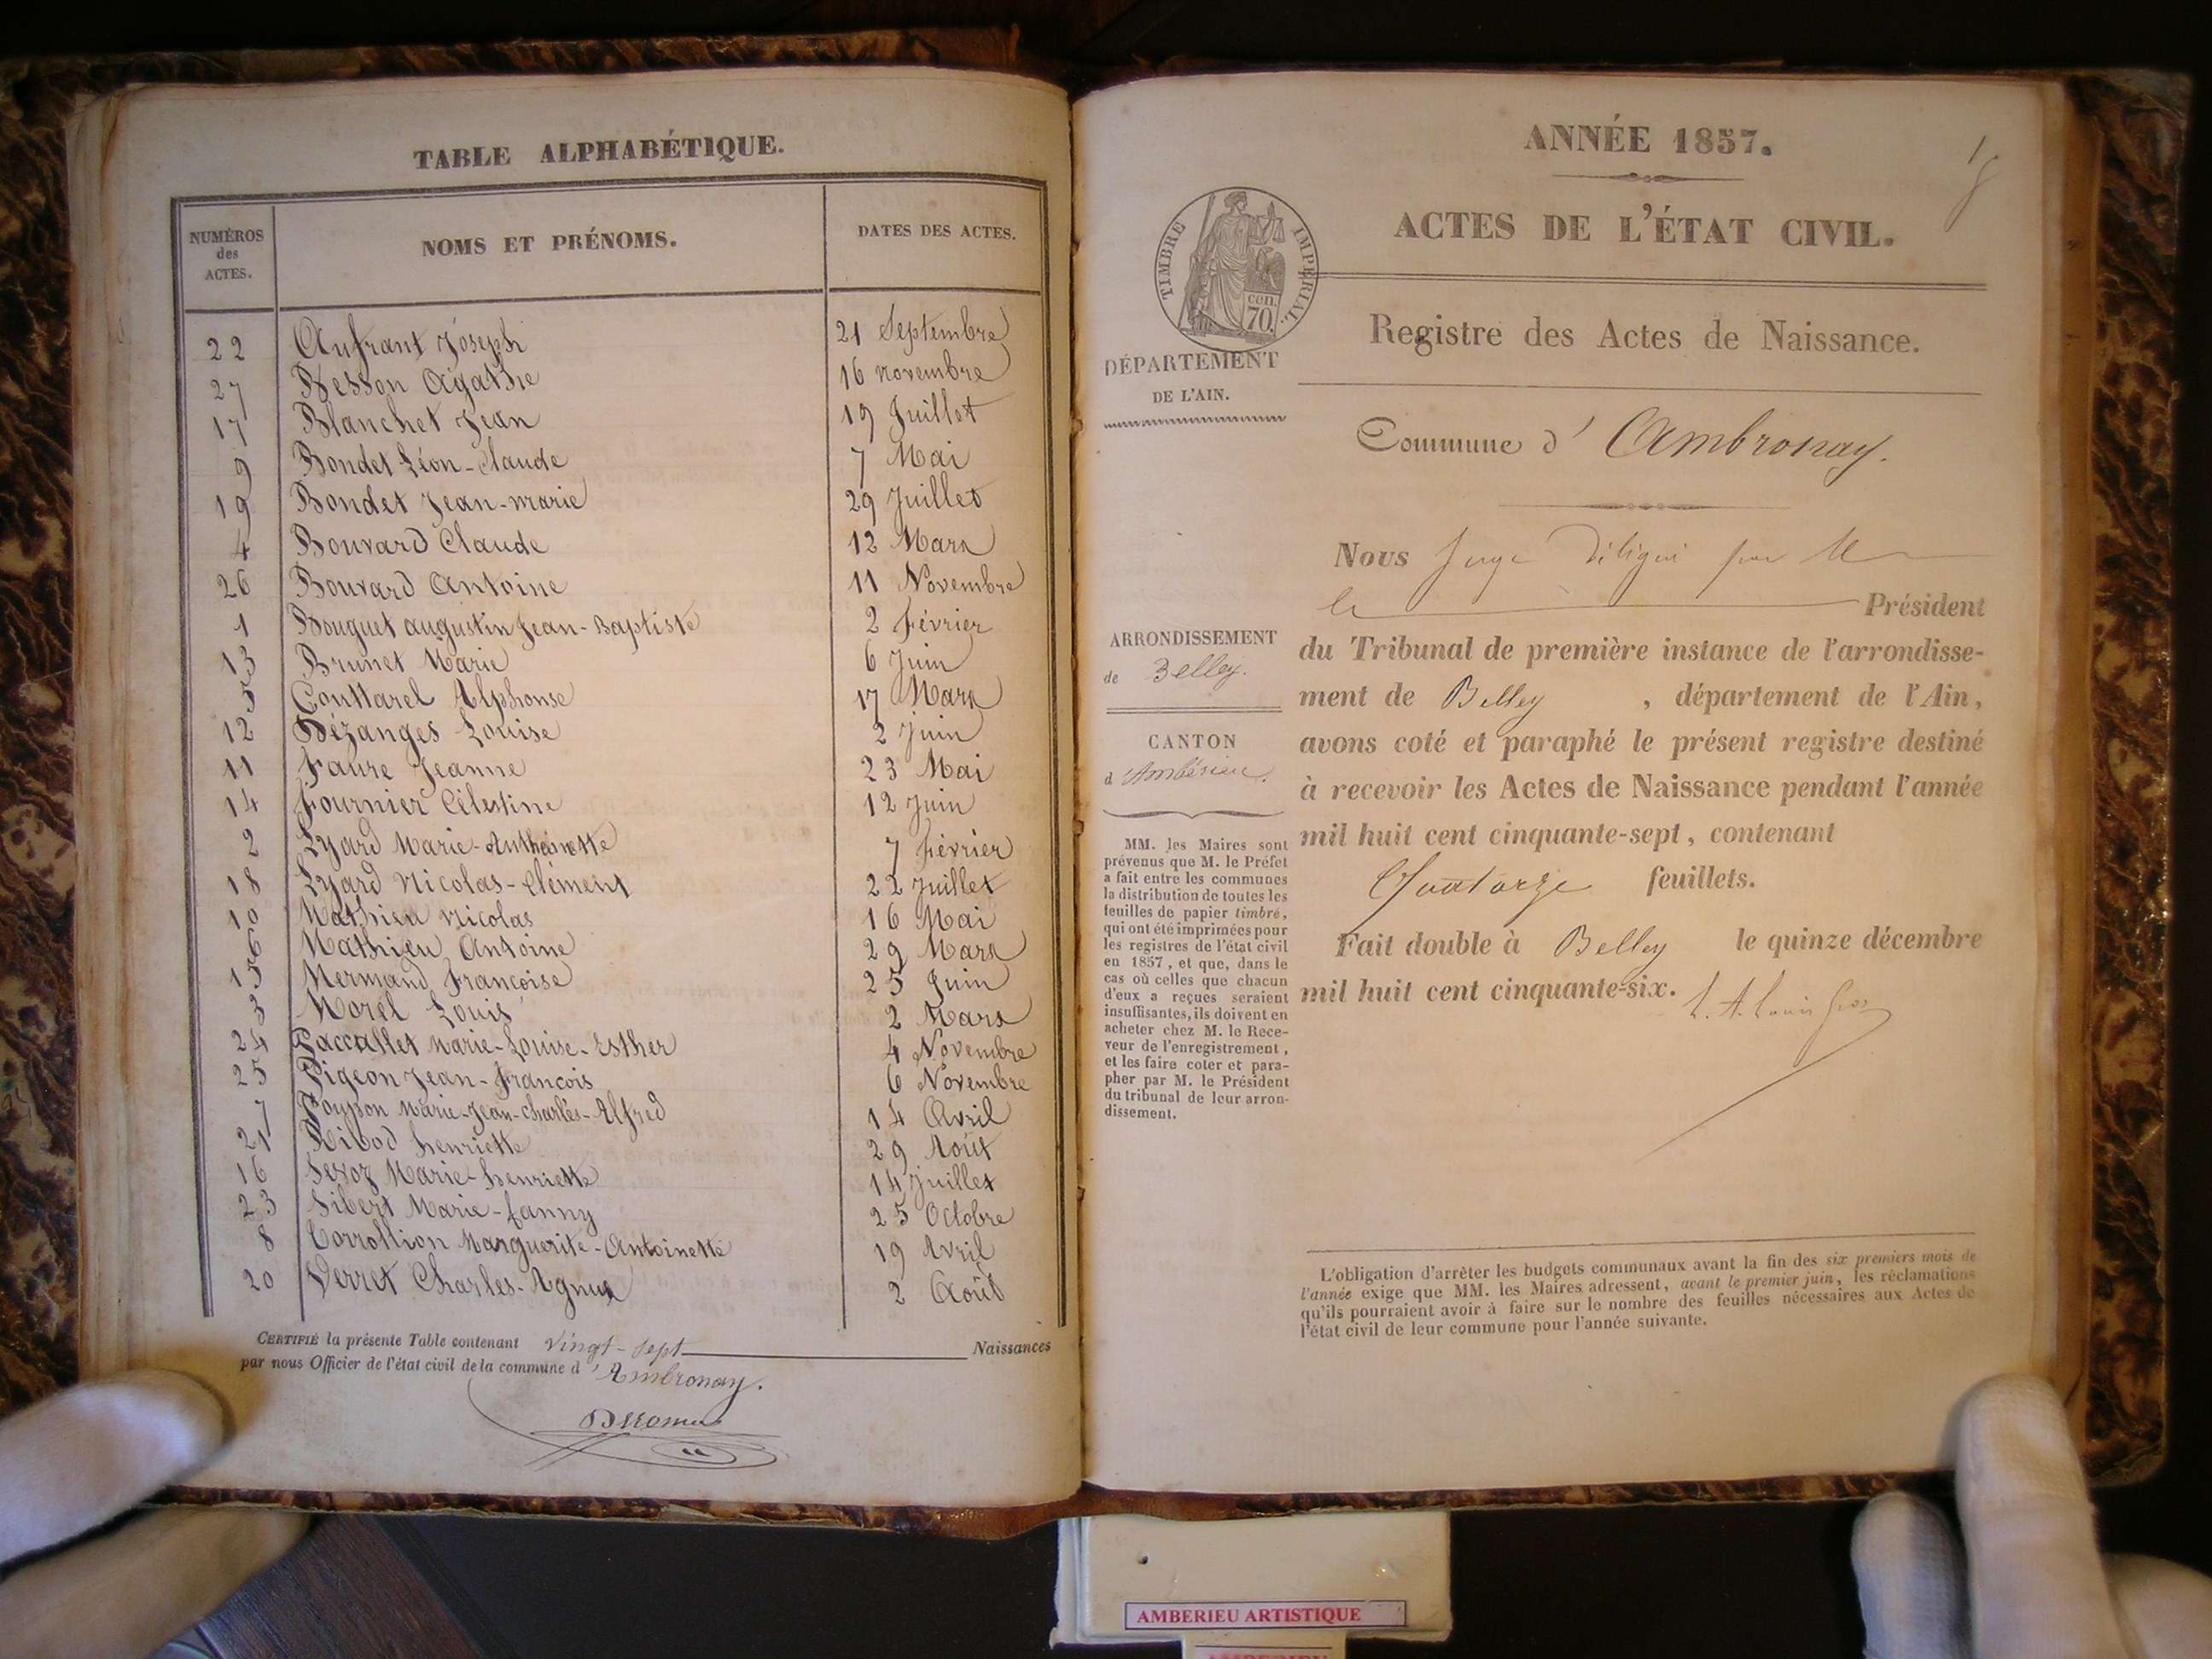 TABLE ALPHABÉTIQUE.
NUMÉROS des ACTES. NOMS ET PRÉNOMS. DATES DES ACTES.
22 Aufrant Joseph 21 Septembre
27 Besson Agathe 16 novembre
17 Blanchet Jean 19 Juillet
9 Bondet Léon-Claude 7 Mai
19 Bondet Jean-marie 29 Juillet
4 Bouvard Claude 12 Mars
26 Bouvard Antoine 11 Novembre
1 Bouguet augustin Jean-Baptiste 2 Février
13 Brunet Marie 6 Juin
5 Couttarel Alphonse 17 Mars
12 Dézanges Louise 2 Juin
11 Faure Jeanne 23 Mai
14 Fournier Célestine 12 Juin
2 Lyard Marie- 7 Février
18 Lyard Nicolas-Clément 22 Juillet
10 Mathieu Nicolas 16 Mai
6 Mathieu Antoine 29 Mars
15 Mermand Francoise 25 Juin
3 Morel Louis 2 Mars
24 Paccallet Marie-Louise-Esther 4 Novembre
25 Pigeon Jean-Francois 6 Novembre
7 Poypon Marie-Jean-Charles-Alfred 14 Avril
21 Ribod henriette 29 Août
16 Servoz Marie-henriette 14 Juillet
23 Sibert Marie-fanny 25 Octobre
8 Marguerite-Antoinette 19 Avril
20 Verret Charles-Agnus 2 Août
CERTIFIÉ la présente Table contenant Vingt-Sept Naissances
par nous Officier de l'état civil de la commune d'Ambronay.
ANNÉE 1857.
ACTES DE L'ÉTAT CIVIL.
TIMBRE IMPÉRIAL.
cen. 70.
Registre des Actes de Naissance.
DÉPARTEMENT
DE L'AIN.
Commune d'Ambronay.
Nous Juge par M
le Président
ARRONDISSEMENT
de Belley.
du Tribunal de première instance de l'arrondisse-
ment de Belley, département de l'Ain,
CANTON
d'Ambérieu.
avons coté et paraphé le présent registre destiné
à recevoir les Actes de Naissance pendant l'année
mil huit cent cinquante-sept, contenant
Quatorze feuillets.
Fait double à Belley le quinze décembre
mil huit cent cinquante-six.
MM. les Maires sont
prévenus que M. le Préfet
a fait entre les communes
la distribution de toutes les
feuilles de papier timbré,
qui ont été imprimées pour
les registres de l'état civil
en 1857, et que, dans le
cas où celles que chacun
d'eux a reçues seraient
insuffisantes, ils doivent en
acheter chez M. le Rece-
veur de l'enregistrement,
et les faire coter et para-
pher par M. le Président
du tribunal de leur arron-
dissement.
L'obligation d'arrêter les budgets communaux avant la fin des six premiers mois de
l'année exige que MM. les Maires adressent, avant le premier juin, les réclamations
qu'ils pourraient avoir à faire sur le nombre des feuilles nécessaires aux Actes de
l'état civil de leur commune pour l'année suivante.
AMBERIEU ARTISTIQUE